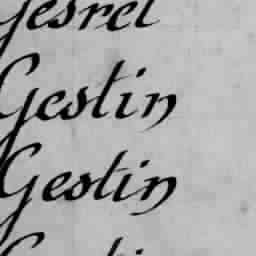 Gesrel
Gestin
Gestin